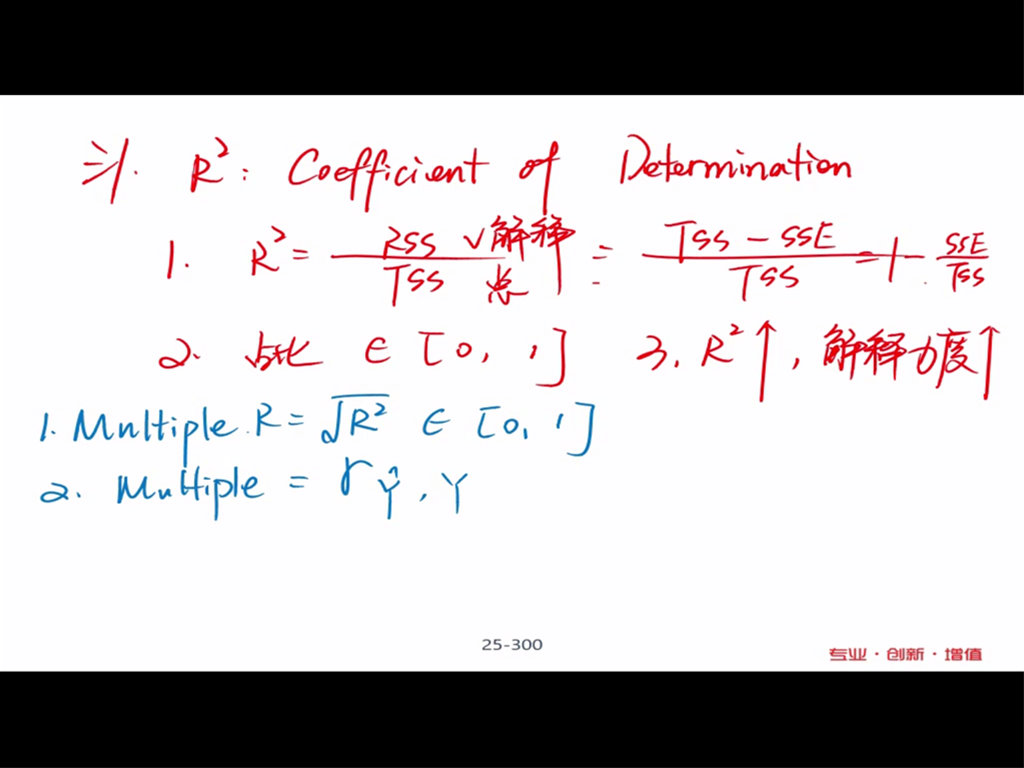 R²: Coefficient of Determination
1. R² = RSS √解释 / TSS 总 = TSS - SSE / TSS = 1 - SSE / TSS
2. 占比 ∈ [0, 1] 3. R²↑, 解释力度↑
1. Multiple R = √R² ∈ [0, 1]
2. Multiple = r Ŷ, Y
25-300
专业·创新·增值